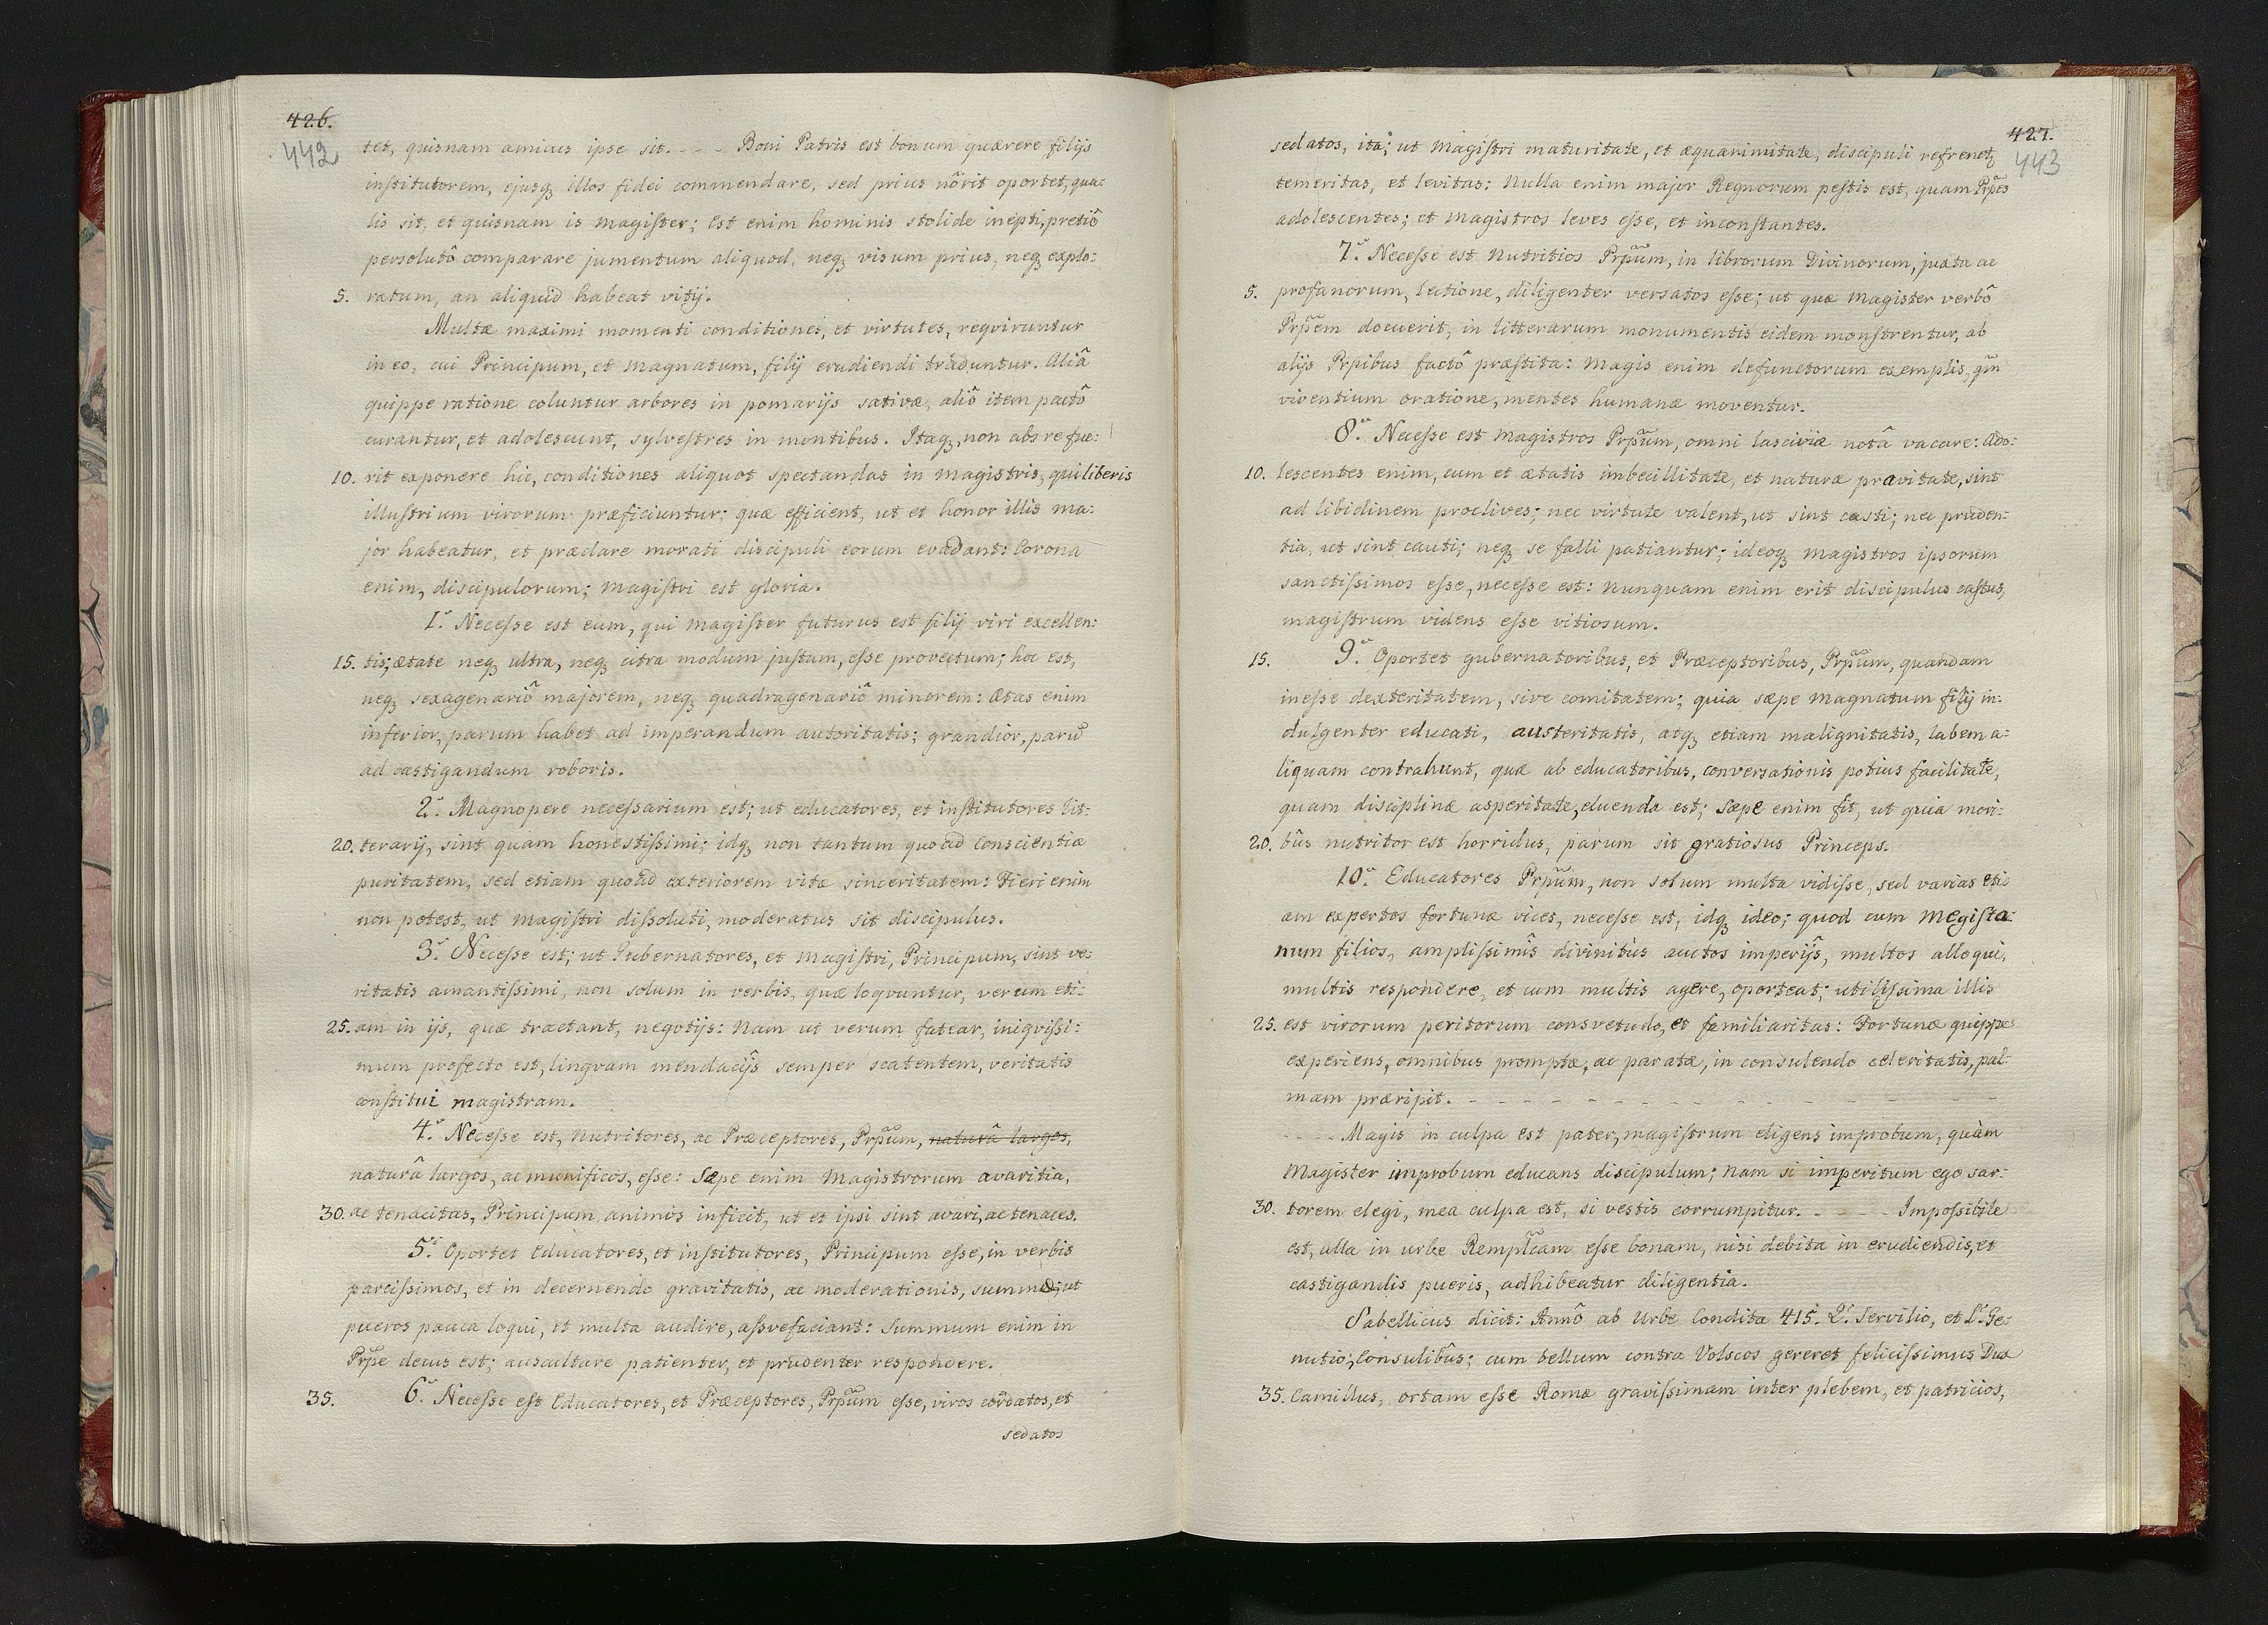 426.
442
tet, quisnam amicus ipse sit. - - - Boni Patris est bonum quærere filijs
inſtitutorem, ejusq; illos fidei commendare, sed prius nôrit oportet, qua:
lis sit, et quisnam is Magiſter; Est enim hominis stolide inepti, pretiô
persolutô comparare jumentum aliquod, neq; visum prius, neq; explo:
5. ratum, an aliquid habeat vitij.
Multæ maximi momenti conditiones, et virtutes, reqviruntur
in eo, cui Principum, et Magnatum, filij erudiendi traduntur. Aliâ
quippe ratione coluntur arbores in pomarijs sativæ, aliô item pactô
curantur, et adolescunt, sylveſtres in montibus. Itaq; non abs re fue:
10. rit exponere hic, conditiones aliquot spectandas in Magistris, qui liberis
illuſtrium virorum præficiuntur; quæ efficient, ut et honor illis ma:
jor habeatur, et præclare morati discipuli eorum evadant: Corona
enim, discipulorum; Magiſtri est gloria.
1.º Neceſse est eum, qui Magiſter futurus est filij viri excellen:
15. tis; ætate neq; ultra, neq; citra modum juſtam, eſse provectum; hoc est,
neq; sexagenariô majorem, neq; quadragenariô minorem: Ætas enim
inferior, parum habet ad imperandum autoritatis; grandior, parũ
ad castigandum roboris.
2.º Magnopere neceſsarium est; ut educatores, et inſtitutores lit:
20. terarij, sint quam honestiſsimi; idq; non tantum quoad Conscientiæ
puritatem, sed etiam quoad exteriorem vitæ sinceritatem: Fieri enim
non potest, ut Magiſtri diſsoluti, moderatus sit discipulus.
3.º Neceſse est; ut Gubernatores, et Magiſtri, Principum, sint ve:
ritatis amantiſsimi, non solum in verbis, quæ loqvuntur, verum eti:
25. am in ijs, quæ tractant, negotijs: Nam ut verum fatear, iniqviſsi:
mum profecto est, lingvam mendacijs semper scatentem, veritatis
conſtitui magistram.
4.º Neceſse est, Nutritores, ac Præceptores, Prpũm, naturâ largos,
naturâ largos, ac munificos, eſse: Sæpe enim Magistrorum avaritia,
30. ac tenacitas, Principum animos inficit, ut et ipsi sint avari, ac tenaces.
5.º Oportet Educatores, et inſtitutores, Principum eſse, in verbis
parciſsimos, et in decernendo gravitatis, ac moderationis, summæ; ut
pueros pauca loqui, et multa audire, aſsvefaciant: Summum enim in
Prpe decus est; auscultare patienter, et prudenter respondere.
35. 6.º Neceſse eſt Educatores, et Præceptores, Prpũm eſse, viros cordatos, et
sedatos
427.
443
sedatos, ita; ut Magiſtri maturitate, et æquanimitate, discipuli refrenet;
temeritas, et levitas: Nulla enim major Regnorum peſtis est, quam Prpes
adolescentes; et Magistros leves eſse, et inconſtantes.
7.º Neceſse est Nutritios Prpũm, in librorum Divinorum, juxta ac
5. profanorum, lectione, diligenter versatos eſse; ut quæ Magister verbô
Prpem docuerit, in litterarum monumentis eidem monſtrentur, ab
alijs Prpibus factô præſtita: Magis enim defunctorum exemplis, qm̃
viventium oratione, mentes humanæ moventur.
8.º Neceſse est Magistros Prpũm, omni lasciviæ notâ vacare: Ado:
10. lescentes enim, cum et ætatis imbecillitate, et naturæ pravitate, sint
ad libidinem proclives; nec virtute valent, ut sint casti; nec pruden:
tia, ut sint cauti; neq; se falli patiantur; ideoq; Magistros ipsorum
sanctiſsimos eſse, neceſse est: Nunquam enim erit discipulus caſtus,
magiſtrum videns eſse vitiosum.
15. 9.º Oportet gubernatoribus, et Præceptoribus, Prpũm, quandam
ineſse dexteritatem, sive comitatem; quia sæpe Magnatum filij in:
dulgenter educati, austeritatis, atq; etiam malignitatis, labem a:
liquam contrahunt, quæ ab educatoribus, conversationis potius facilitate,
quam disciplinæ asperitate, eluenda est; Sæpe enim fit, ut quia mori:
20. bus nutritor est horridus, parum sit gratiosus Princeps.
10.º Educatores Prpũm, non solum multa vidiſse, sed varias eti:
am expertos fortunæ vices, neceſse est, idq; ideo; quod cum Megiſta:
num filios, ampliſsimîs divinitùs auctos imperijs, multos alloqui,
multis respondere, et cum multis agere, oporteat; utiliſsima illis
25. est virorum peritorum consvetudo, et familiaritas: Fortunæ quippe
experiens, omnibus promptæ, ac paratæ, in consulendo celeritatis, pal:
mam præripit. - - - - - - - - - - - - - -
- - - - Magis in culpa est pater, magiſtrum eligens improbum, quàm
Magister improbum educans discipulum; Nam si imperitum ego sar:
30. torem elegi, mea culpa est, si vestis corrumpitur. - - - - - Impoſsibile
est, ulla in urbe Remplc̃am eſse bonam, nisi debita in erudiendis, et
castigandis pueris, adhibeatur diligentia.
Sabellicus dicit: Annô ab Urbe Condita 415. Q. Servilio, et L. Ge:
nutio, Consulibus; cum bellum contra Volscos gereret feliciſsimus Dux
35. Camillus, ortam eſse Romæ graviſsimam inter plebem, et patricios,